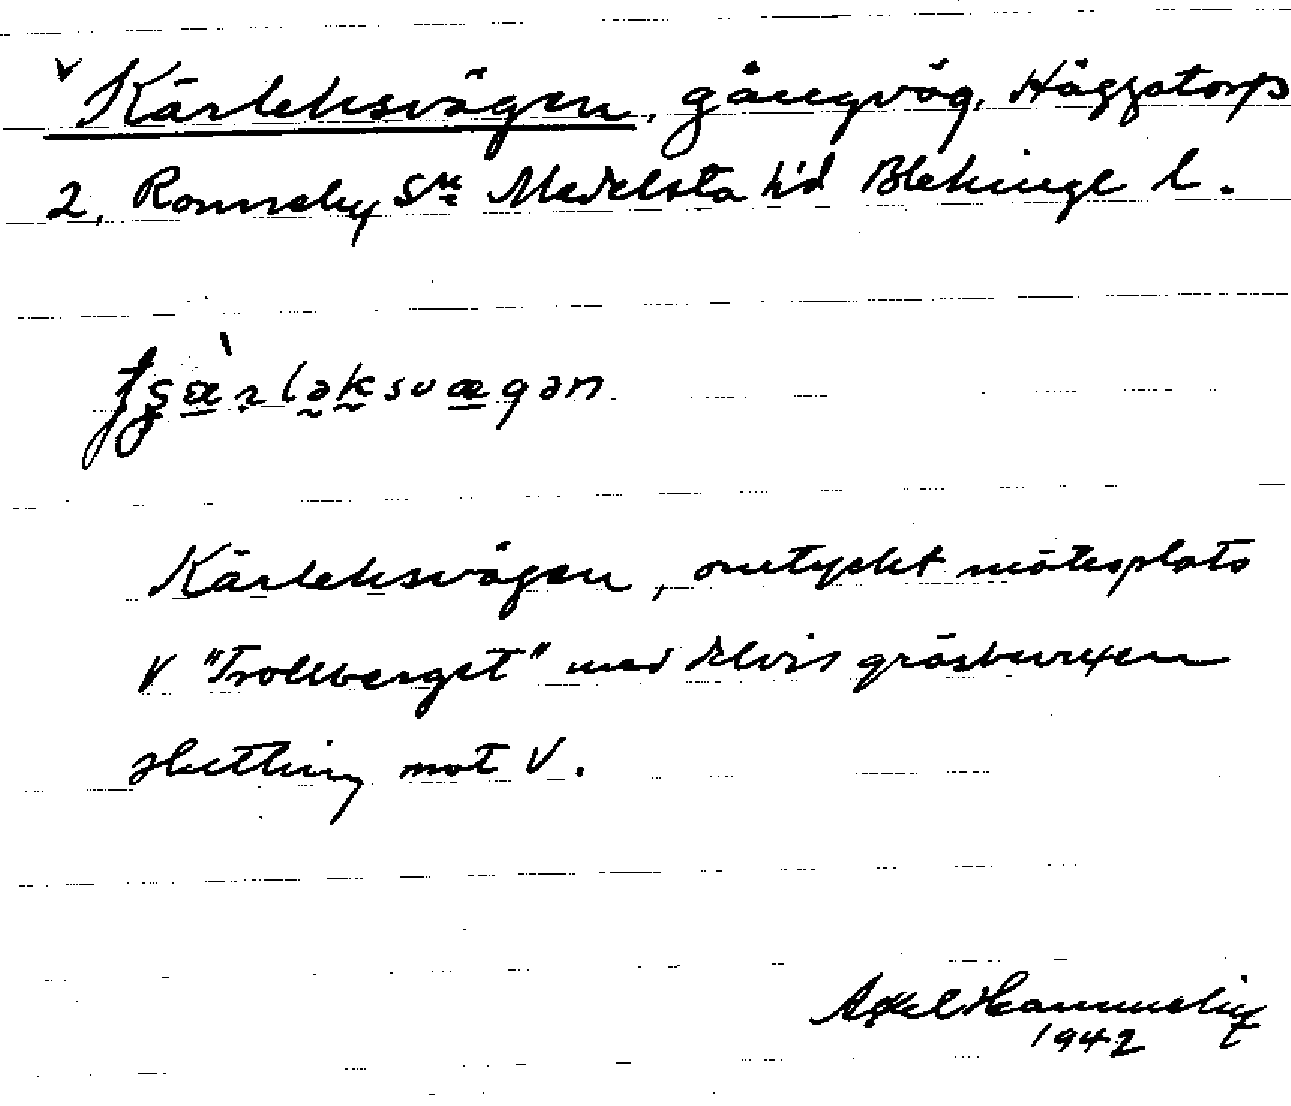 Kärleksvägen, gångväg, Häggatorp
2, Ronneby sn Medelsta hd Blekinge l.
Kärleksvägen, omtyckt mötesplats
V "Trollberget" med delvis gräsbevuxen
sluttning mot V.
Axel
1942